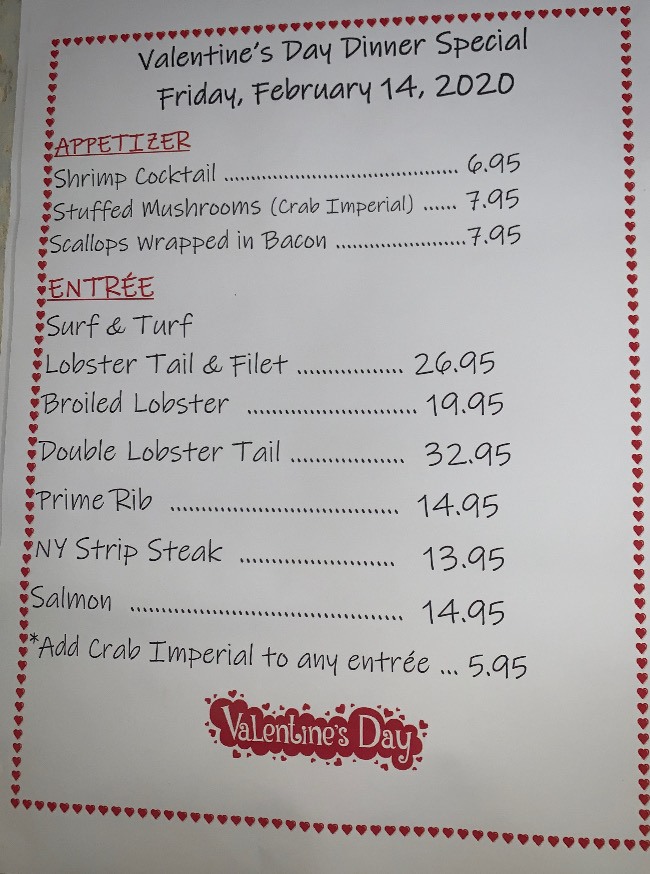 Valentine's Day Dinner Special
Friday, February 14, 2020
APPETIZER
Shrimp Cocktail ...................................... 6.95
Stuffed Mushrooms (Crab Imperial) ...... 7.95
Scallops Wrapped in Bacon .......................7.95
ENTRÉE
Surf & Turf
Lobster Tail & Filet ................. 26.95
Broiled Lobster ........................... 19.95
Double Lobster Tail .................. 32.95
Prime Rib .................................... 14.95
NY Strip Steak ........................ 13.95
Salmon .......................................... 14.95
*Add Crab Imperial to any entrée ... 5.95
Valentine's Day